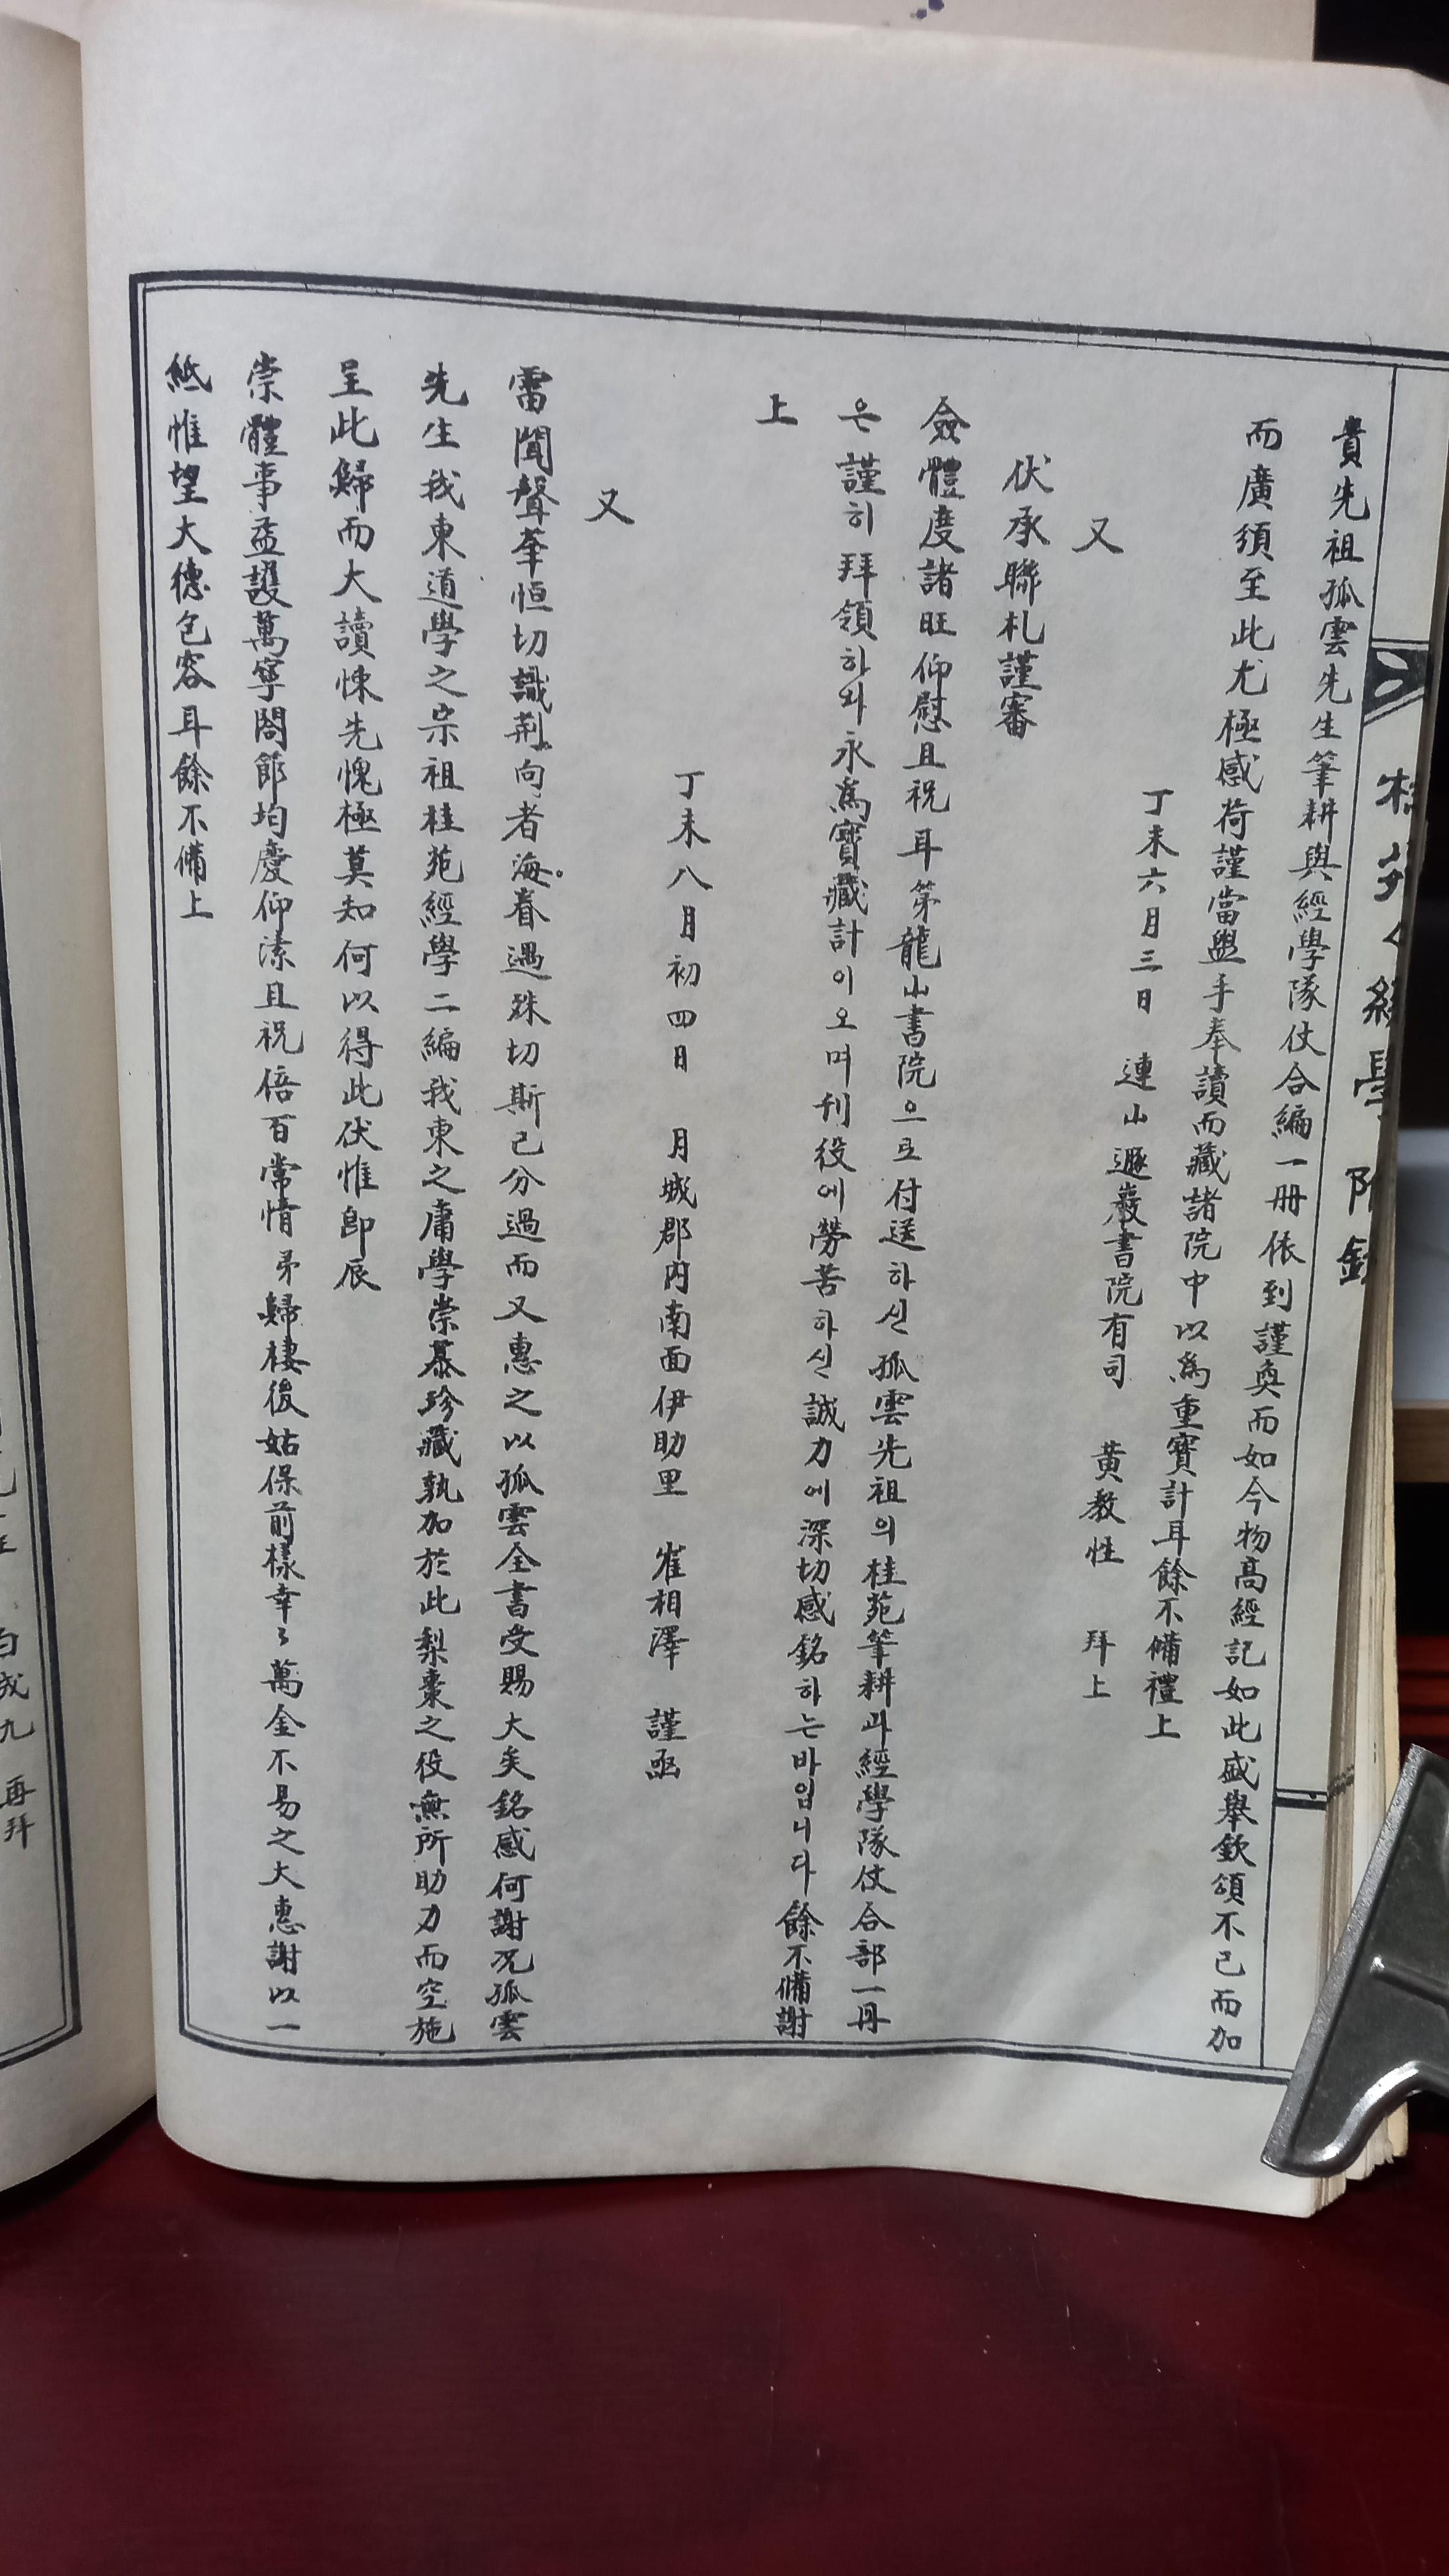 貴先祖孤雲先生筆耕與經學隊仗合編一册依到謹奐而如今物高經記如此盛舉欽頌不已而加
而廣須至此尤極感荷謹當盥手奉讀而藏諸院中以爲重寶計耳餘不備禮上
丁未六月三日 連山遯巖書院有司 黃教性 拜上
又
伏承聯札謹審
僉體度諸旺仰慰且祝耳第龍山書院으로付送하신孤雲先祖의桂苑筆耕과經學隊仗合部一冊
은謹히拜領하와永爲寶藏計이오며刊役에勞苦하신誠力에深切感銘하는바입니다餘不備謝
上
丁未八月初四日 月城郡內南面伊助里 崔相澤 謹函
又
雷聞聲華恒切識荊向者海眷遇殊切斯已分過而又惠之以孤雲全書受賜大矣銘感何謝况孤雲
先生我東道學之宗祖桂苑經學二編我東之庸學崇慕珍藏孰加於此梨棗之役無所助力而空施
呈此歸而大讀悚先愧極莫知何以得此伏惟卽辰
崇體事益護萬寧閤節均慶仰溸且祝倍百常情弟歸棲後姑保前樣幸々萬金不易之大惠謝以一
紙惟望大德包容耳餘不備上
學
白成九 再拜